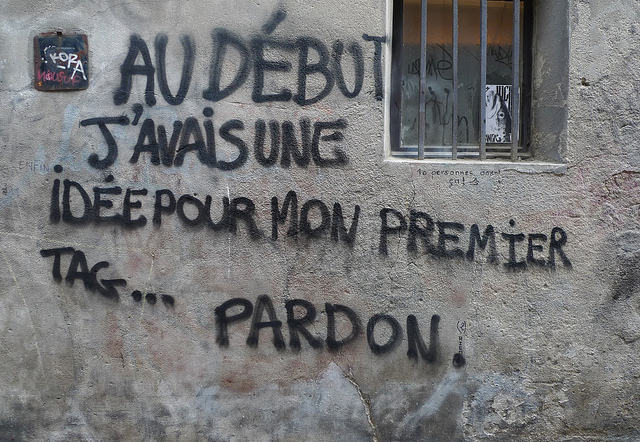 AU DÉBUT
J'AVAIS UNE
IDÉE POUR MON PREMIER
TAG...
PARDON.
KOPA
10 personnes aiment
ça!